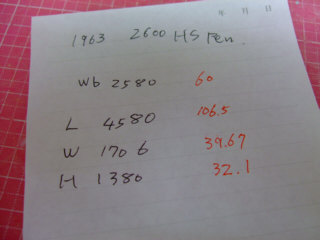 年 月 日
1963 2600 HS Fen.
Wb 2580 60
L 4580 106.5
W 1706 39.67
H 1380 32.1